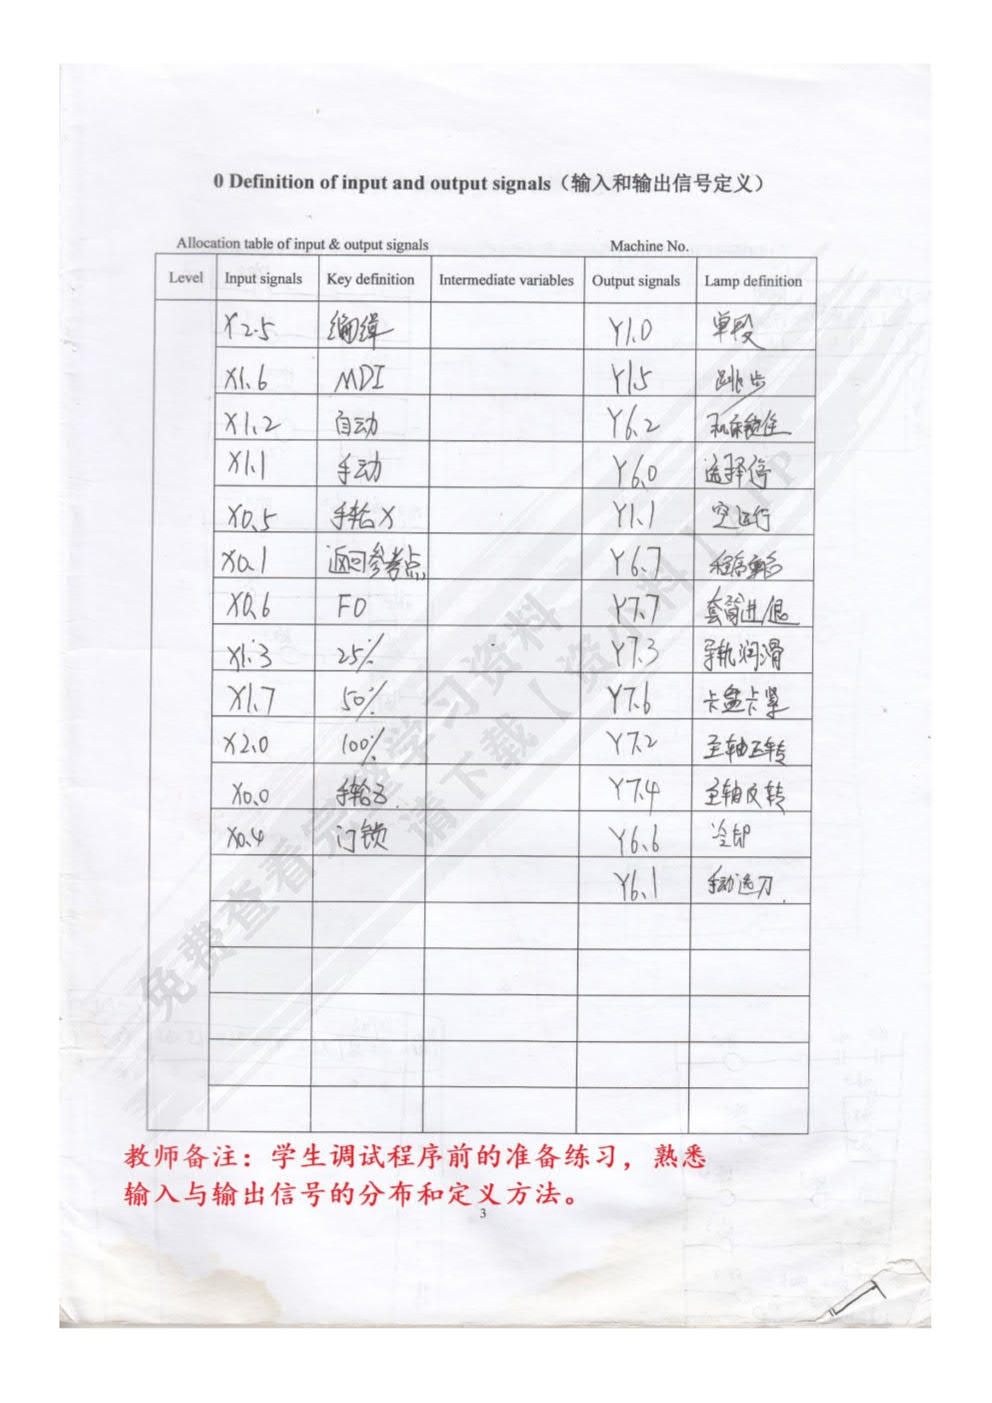 0 Definition of input and output signals（输入和输出信号定义）
Allocation table of input & output signals Machine No.
Level Input signals Key definition Intermediate variables Output signals Lamp definition
X2.5 编辑 Y1.0 单段
X1.6 MDI Y1.5 跳步
X1.2 自动 Y6.2 机床锁住
X1.1 手动 Y6.0 选择停
X0.5 手轮X Y1.1 空运行
X0.1 返回参考点 Y6.7
X0.6 F0 Y7.7 套筒进/退
X1.3 25% Y7.3 导轨润滑
X1.7 50% Y7.6 卡盘卡紧
X2.0 100% Y7.2 主轴正转
X0.0 手轮Z Y7.4 主轴反转
X0.4 门锁 Y6.6 冷却
Y6.1 手动选刀
免费查看完整学习资料
请下载【资小料】APP
教师备注：学生调试程序前的准备练习，熟悉
输入与输出信号的分布和定义方法。
3